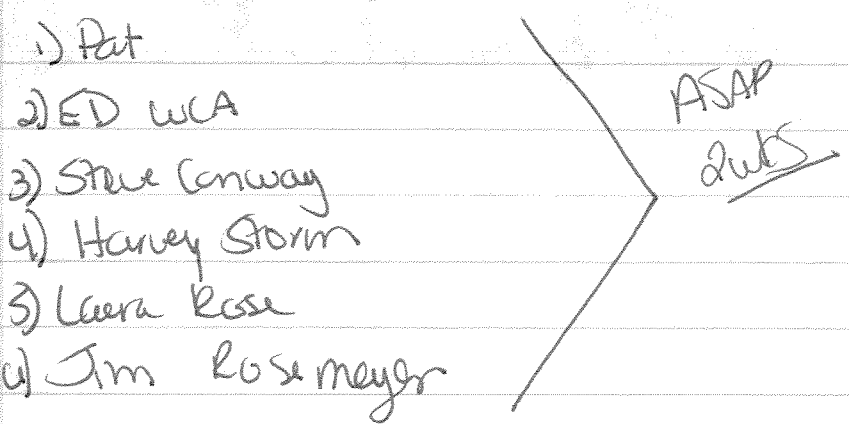 1.) Pat
2) ED WCA
3) Steve Conway
4) Harvey Storm
5) Laura Rose
6) Jim Rosemeyer
ASAP
2wks